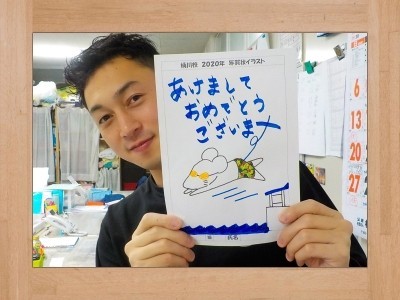 桶川校 2020年 年賀状イラスト
あけまして
おめでとう
ございます
氏名
6
13
20
27